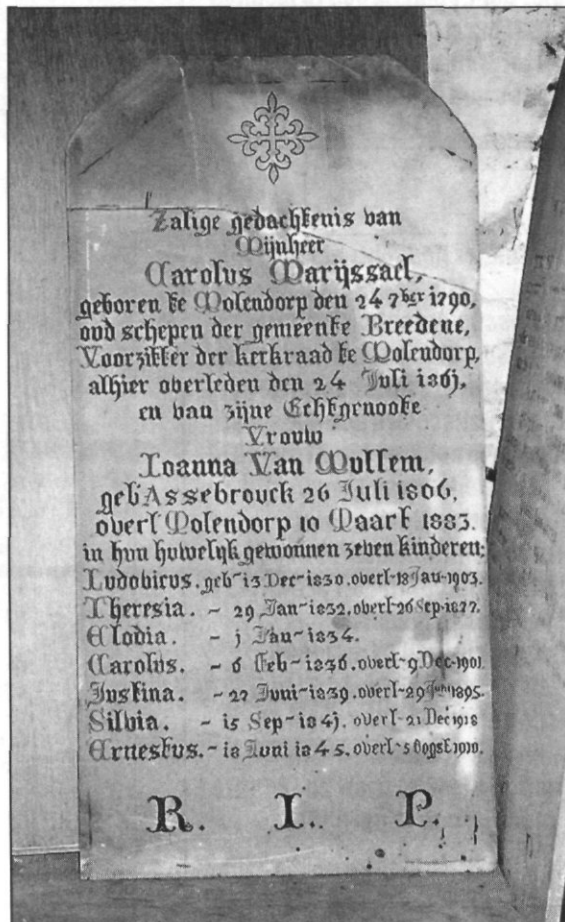 Zalige gedachtenis van
Mijnheer
Carolus Marijssael,
geboren te Molendorp den 24 7ber 1790,
oud schepen der gemeente Breedene,
Voorzitter der kerkraad te Molendorp,
alhier overleden den 24 Juli 186j,
en van zijne Echtgenoote
Vrouw
Ioanna Van Mullem,
geb Assebrouck 26 Juli 1806,
overl Molendorp 10 Maart 1883.
in hun huwelijk gewonnen zeven kinderen:
Ludovicus. geb 13 Dec 1830. overl 18 Jan 1903.
Theresia. - 29 Jan 1832. overl 26 Sep 1877.
Elodia. - j Jan 1834.
Carolus. - 6 Feb 1836. overl 9 Dec 1901.
Justina. - 27 Juni 1839. overl 29 Juni 1895.
Silvia. - 15 Sep 184j. overl 21 Dec 1918
Ernestus. - 18 Juni 1845. overl 5 Oogst 1910.
R. I. P.